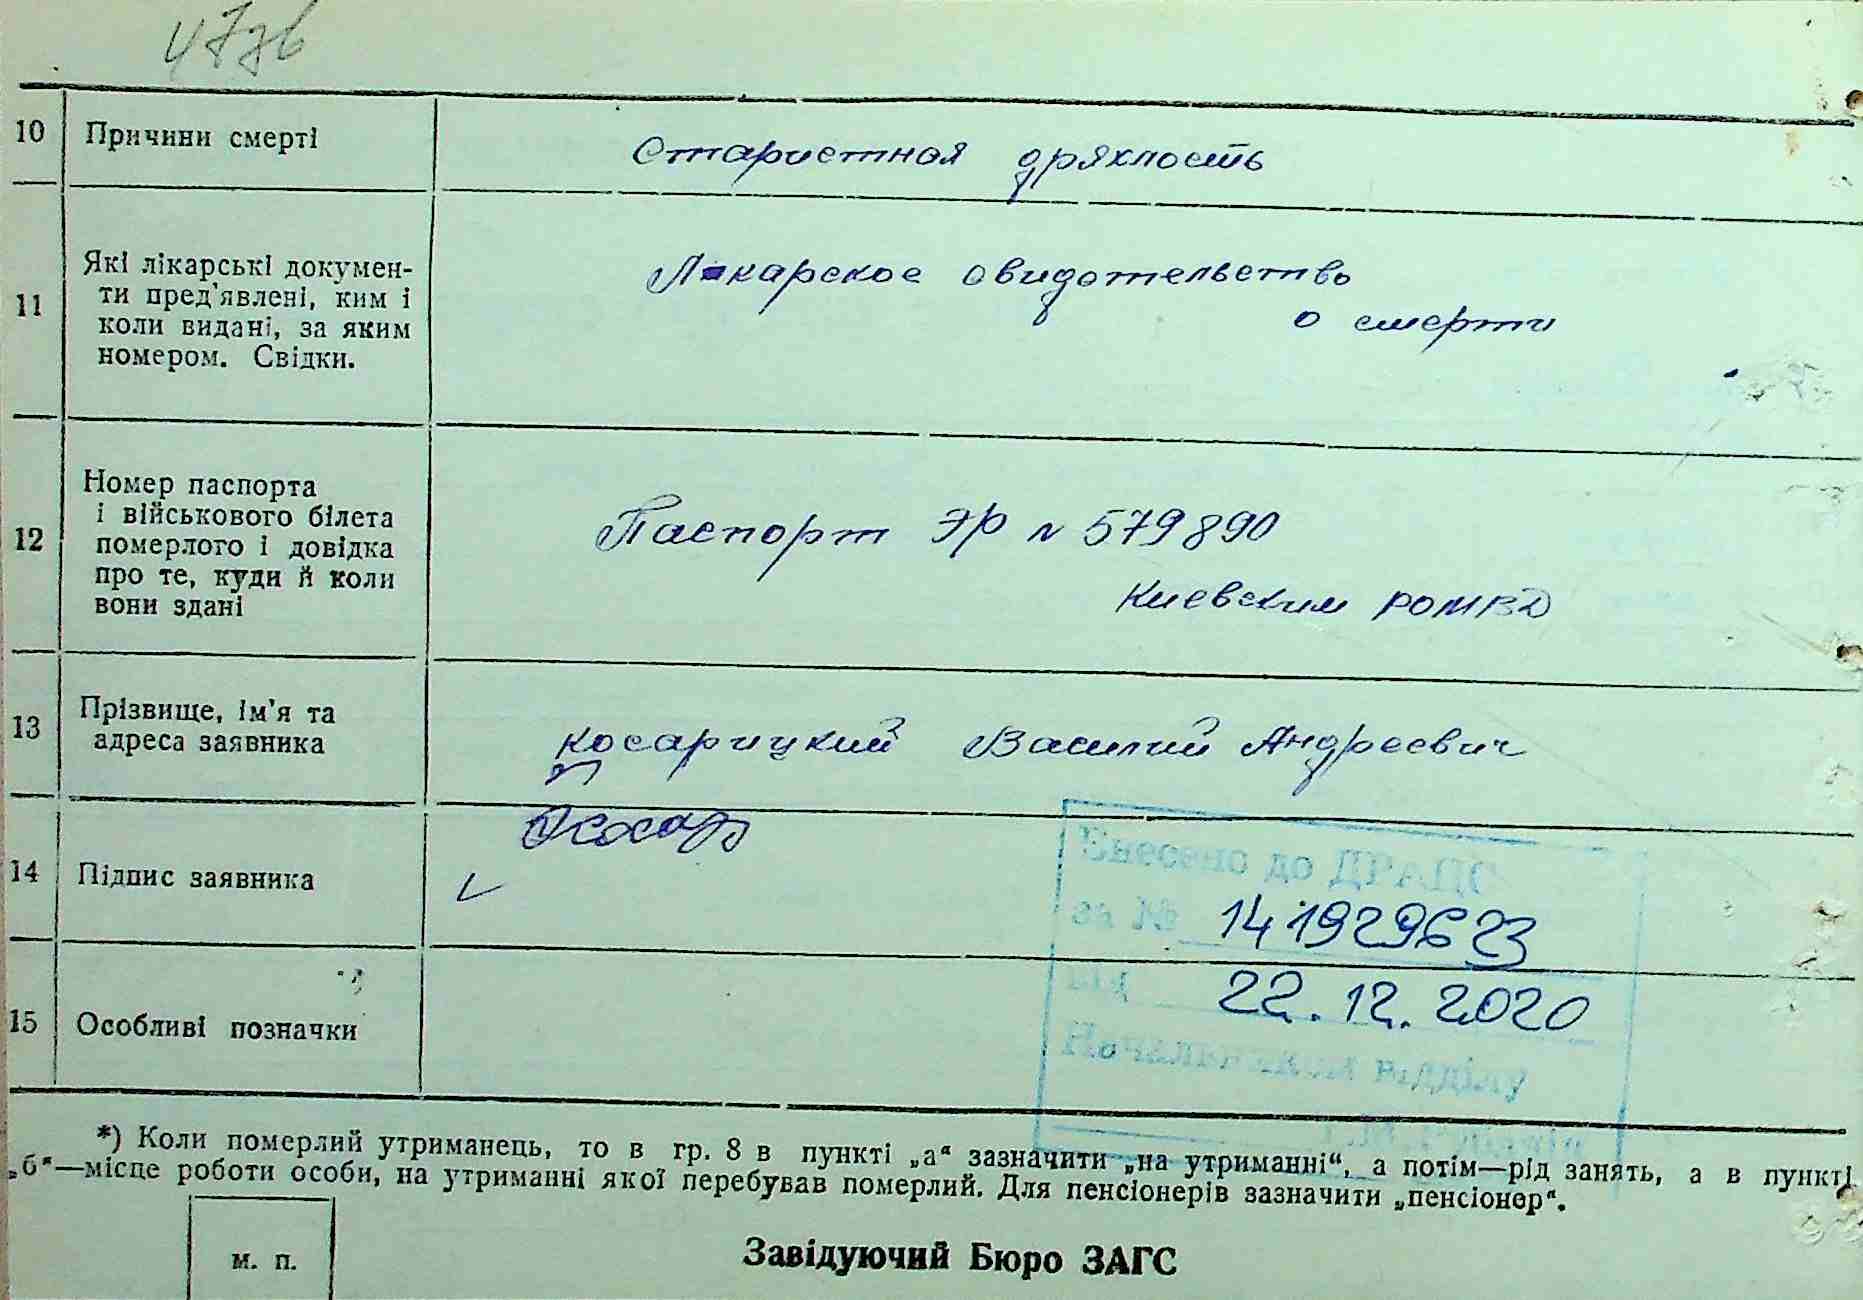 10 Причини смерті Старистная дряхлость
11 Які лікарські докумен-
ти пред'явлені, ким і
коли видані, за яким
номером. Свідки.
Лекарское свидетельство
о смерти
12 Номер паспорта
і військового білета
померлого і довідка
про те, куди й коли
вони здані
Паспорт ЭР № 579890
Киевским РОМВД
13 Прізвище, ім'я та
адреса заявника
Косарицкий Василий Андреевич
14 Підпис заявника
Косар
Внесено до ДРАЦС
за № 141929623
від 22.12.2020
Начальником відділу
15 Особливі позначки
*) Коли померлий утриманець, то в гр. 8 в пункті „а“ зазначити „на утриманні“, а потім—рід занять, а в пункті
„б“—місце роботи особи, на утриманні якої перебував померлий. Для пенсіонерів зазначити „пенсіонер“.
м. п.
Завідуючий Бюро ЗАГС